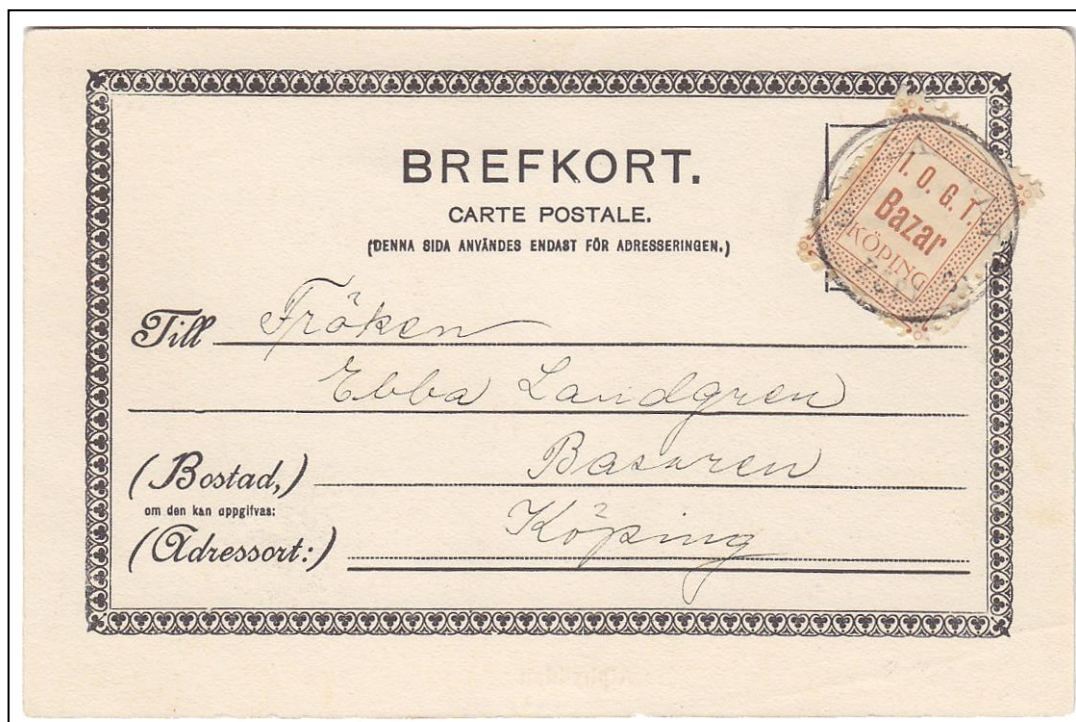 BREFKORT.
CARTE POSTALE.
(DENNA SIDA ANVÄNDES ENDAST FÖR ADRESSERINGEN.)
I. O. G. T.
Bazar
KÖPING
Till Fröken
Ebba Landgren
(Bostad,) Basaren
om den kan uppgifvas:
(Adressort:) Köping